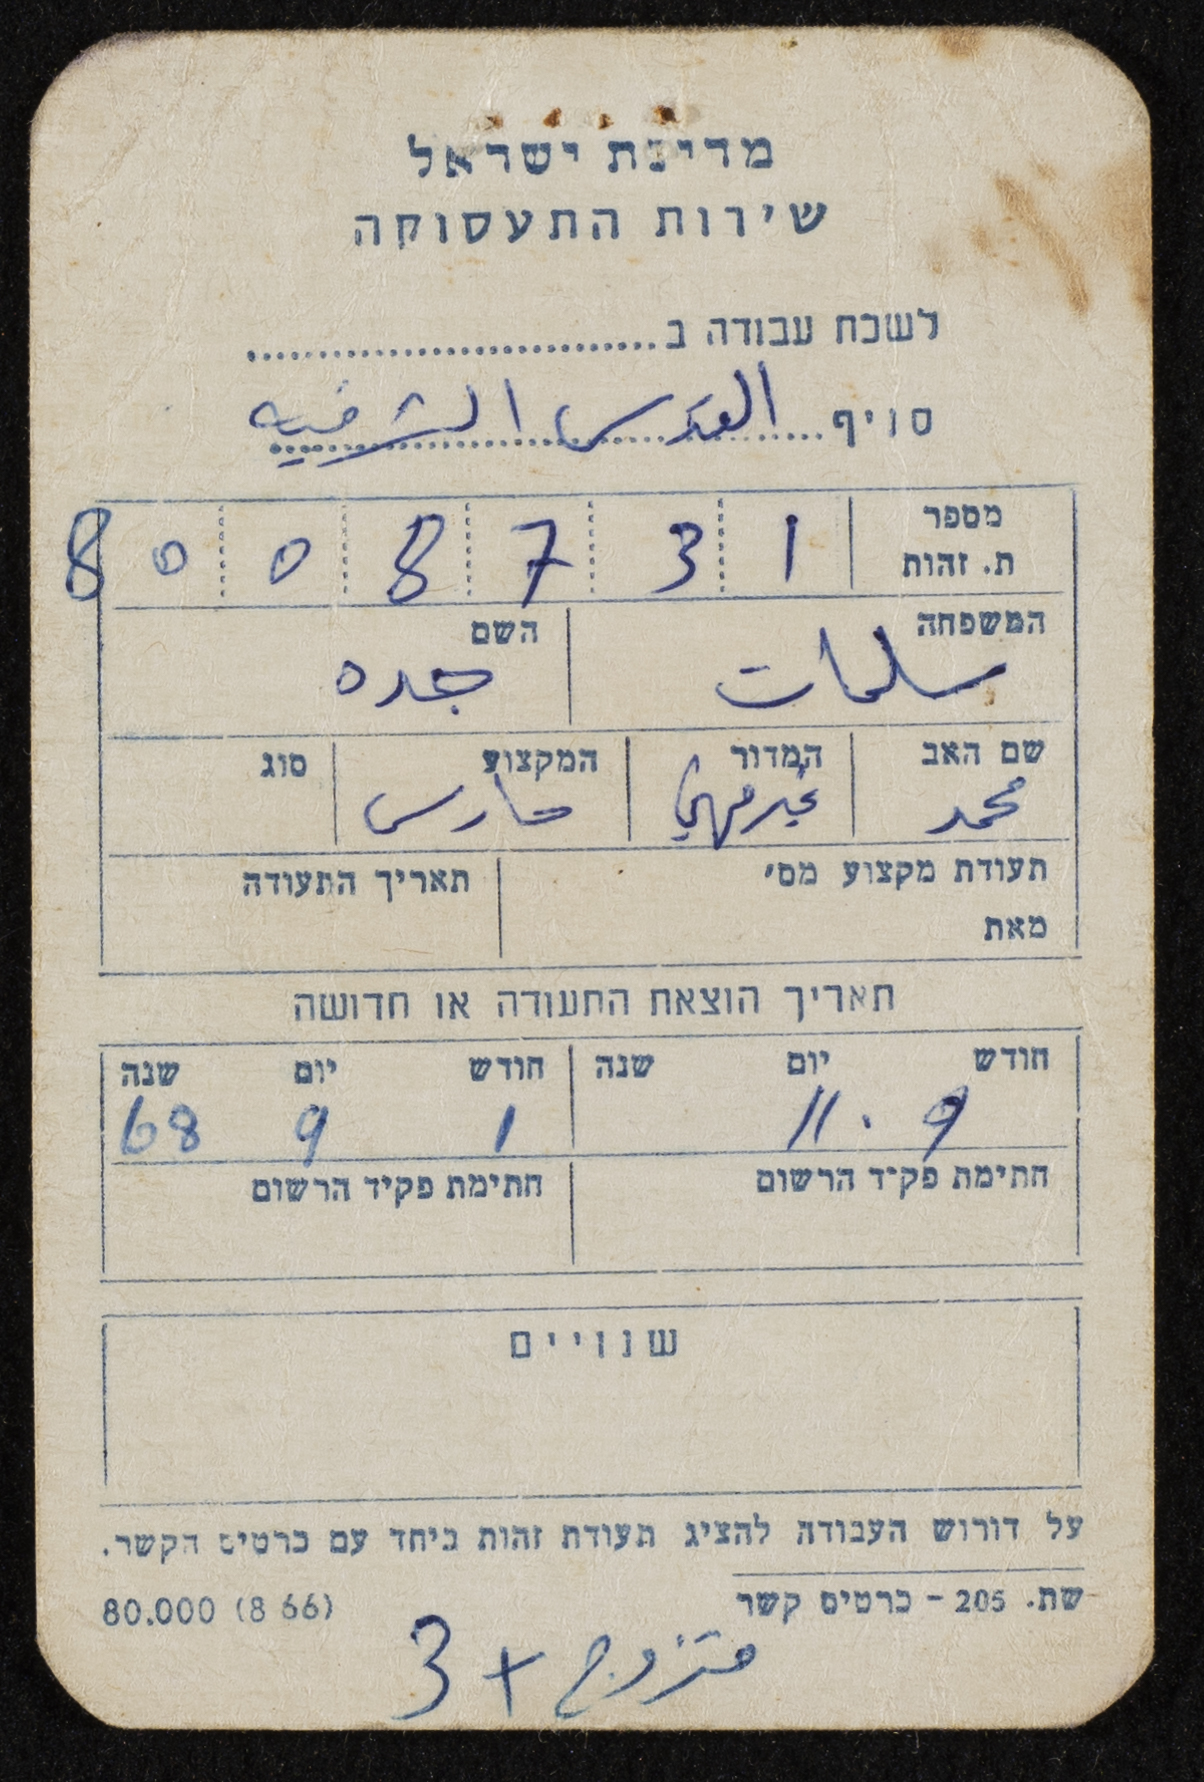 מדינת ישראל
שירות התעסוקה
לשכת עבודה ב..............................
סניף القدس الشرقيه
מספר ת. זהות 8 0 0 8 7 3 1
המשפחה سلمات השם جده
שם האב محمد המדור غير مهني המקצוע حارس סוג
תעודת מקצוע מס׳ תאריך התעודה
מאת
תאריך הוצאת התעודה או חדושה
חודש יום שנה חודש יום שנה
9 . 11 1 9 68
חתימת פקיד הרשום חתימת פקיד הרשום
שנויים
על דורוש העבודה להציג תעודת זהות ביחד עם כרטיס הקשר.
שת. 205 - כרטיס קשר 80.000 (8 66)
متزوج + 3